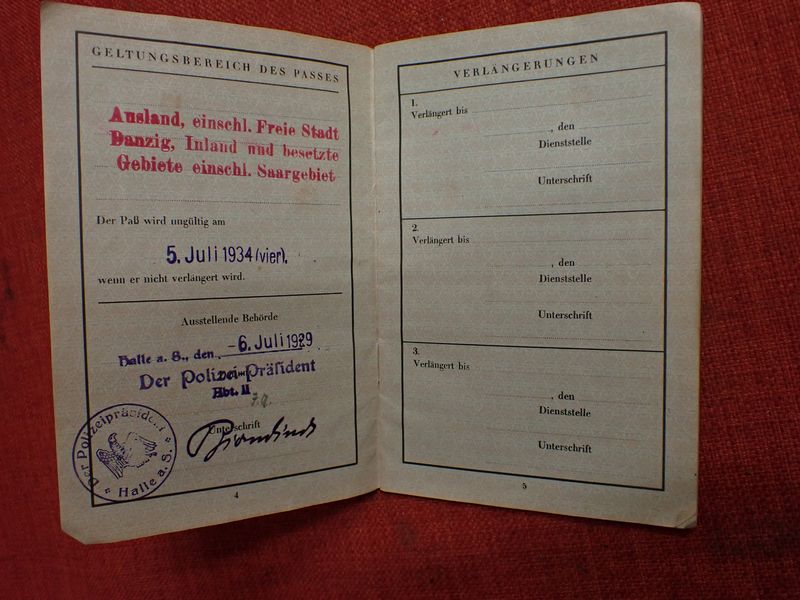 GELTUNGSBEREICH DES PASSES
Ausland, einschl. Freie Stadt
Danzig, Inland und besetzte
Gebiete einschl. Saargebiet
Der Paß wird ungültig am
5. Juli 1934 (vier).
wenn er nicht verlängert wird.
Ausstellende Behörde
Halle a. S., den -6. Juli 1929
Der Polizei-Präsident
Abt. II
Unterschrift
Der Polizeipräsident
Halle a. S.
4
VERLÄNGERUNGEN
1.
Verlängert bis
, den
Dienststelle
Unterschrift
2.
Verlängert bis
, den
Dienststelle
Unterschrift
3.
Verlängert bis
, den
Dienststelle
Unterschrift
5